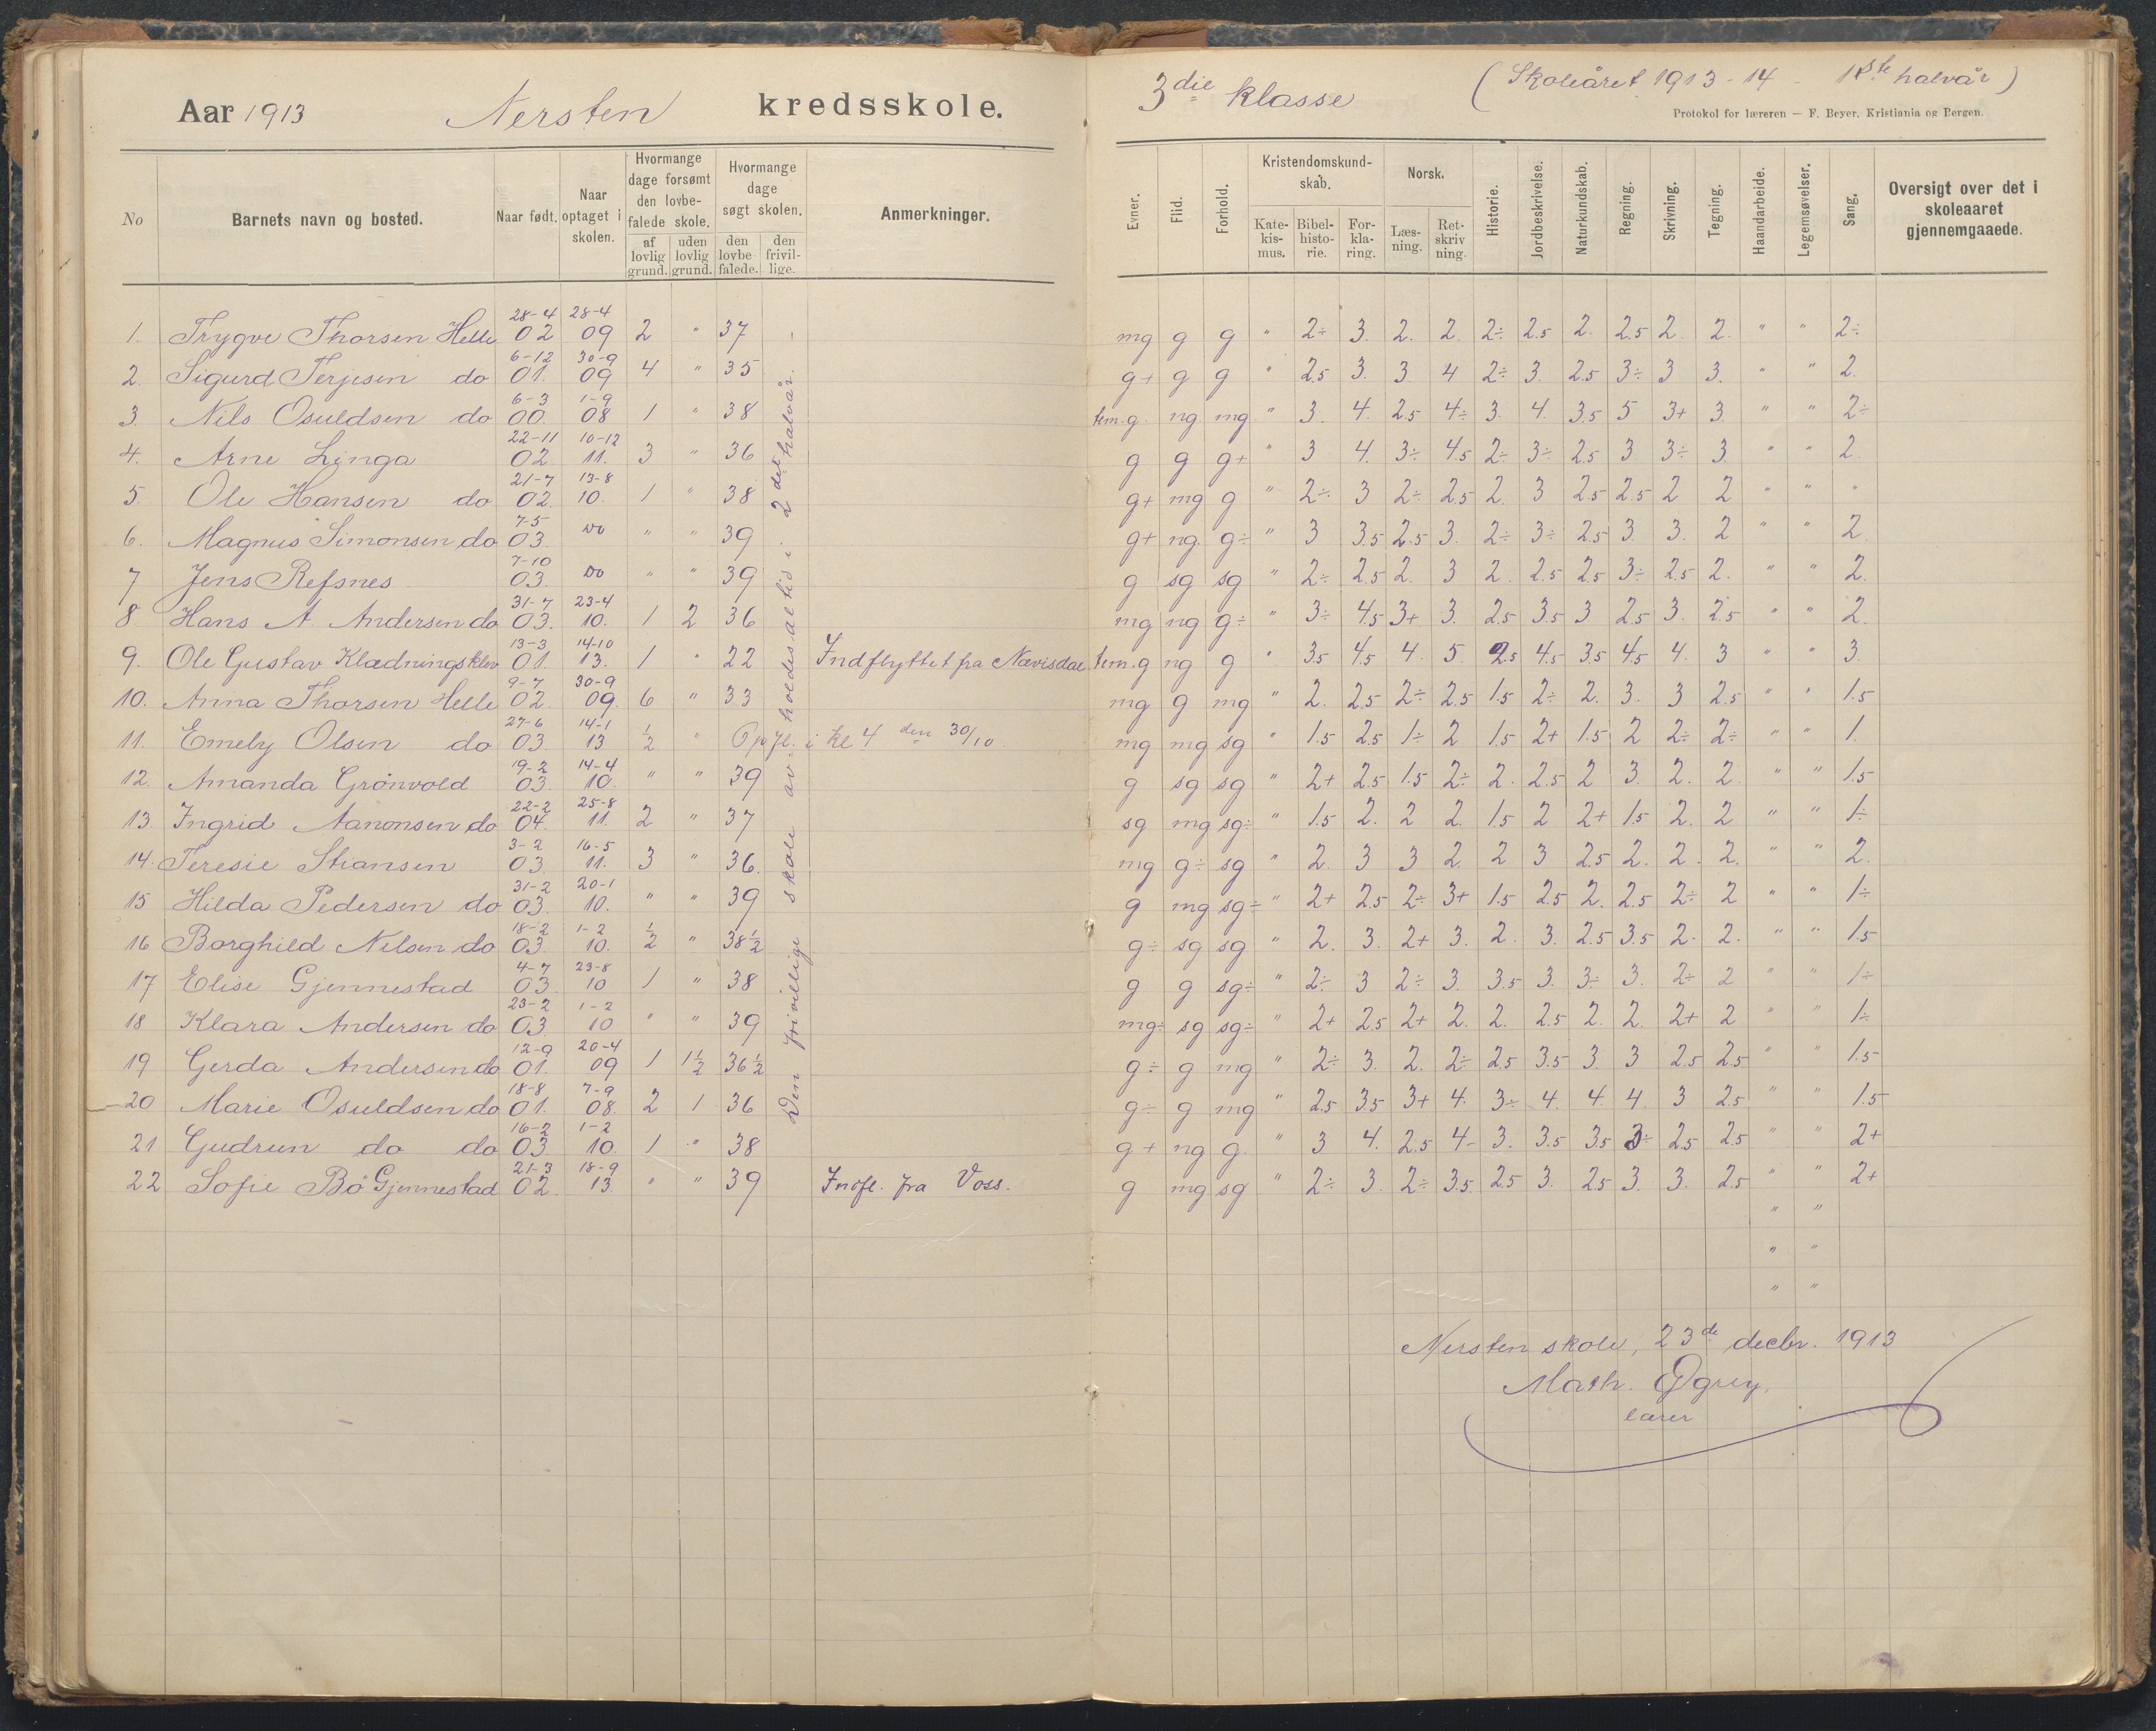 Aar 1913 Nersten kredsskole.
No Barnets navn og bosted. Naar født. Naar optaget i skolen. Hvormange dage forsømt den lovbefalede skole. af lovlig grund. uden lovlig grund. Hvormange dage søgt skolen. den lovbefalede. den frivillige. Anmerkninger.
1. Trygve Thorsen Helle 28-4 02 28-4 09 2 " 37
2. Sigurd Terjesen do 6-12 01. 30-9 09 4 " 35
3. Nils Osuldsen do 6-3 00. 1-9 08 1 " 38
4. Arne Linga 22-11 02 10-12 11. 3 " 36
5. Ole Hansen do 21-7 02. 13-8 10. 1 " 38
6. Magnus Simonsen do 7-5 03. Do " " 39
7 Jens Refsnes 7-10 03. Do " " 39
8 Hans A. Andersen do 31-7 03. 23-4 10. 1 2 36
9. Ole Gustav Klædningsklev 13-3 01. 14-10 13. 1 " 22 Indflyttet fra Nævisdal
10. Anna Thorsen Helle 9-7 02 30-9 09. 6 " 33
11. Emely Olsen do 27-6 03. 14-1 13 ½ " Opfl. i kl 4 den 30/10
12. Amanda Grönvold 19-2 03. 14-4 10. " " 39
13 Ingrid Aanonsen do 22-2 04. 25-8 11. 2 " 37
14. Teresie Sthansen 3-2 03 16-5 11. 3 " 36.
15 Hilda Pedersen do 31-2 03. 20-1 10. " " 39
16 Borghild Nilsen do 18-2 03. 1-2 10. ½ " 38½
17 Elise Gjennestad 4-7 03. 23-8 10 1 " 38
18 Klara Andersen do 23-2 03 1-2 10 " " 39
19 Gerda Andersen do 12-9 01. 20-4 09 1 1½ 36½
20 Marie Osuldsen do 18-8 01. 7-9 08. 2 1 36
21 Gudrun do do 16-2 03. 1-2 10. 1 " 38
22 Sofie Bö Gjennestad 21-3 02. 18-9 13. " " 39 Indfl. fra Voss.
Den frivillige skole avholdes altid i 2det halvår.
3die klasse (Skoleåret 1913-14 - 1ste halvår)
Protokol for læreren — F. Beyer. Kristiania og Bergen.
Evner. Flid. Forhold. Kristendomskundskab. Katekismus. Bibelhistorie. Forklaring. Norsk. Læsning. Retskrivning. Historie. Jordbeskrivelse. Naturkundskab. Regning. Skrivning. Tegning. Haandarbeide. Legemsøvelser. Sang. Oversigt over det i skoleaaret gjennemgaaede.
mg g g " 2÷ 3. 2. 2. 2÷ 2.5 2. 2.5 2. 2. " " 2÷
g+ g g " 2.5 3. 3. 4 2÷ 3. 2.5 3÷ 3 3. " " 2.
tem.g. ng mg " 3. 4. 2.5 4÷ 3. 4. 3.5 5 3+ 3. " " 2÷
g g g+ " 3 4. 3÷ 4.5 2÷ 3÷ 2.5 3 3÷ 3. " " 2.
g+ mg g " 2÷ 3 2÷ 2.5 2. 3 2.5 2.5 2 2 " " "
g+ ng. g÷ " 3 3.5 2.5 3. 2÷ 3÷ 2.5 3. 3. 2 " " 2.
g sg sg " 2÷ 2.5 2. 3 2. 2.5 2.5 3÷ 2.5 2. " " 2.
mg ng g÷ " 3÷ 4.5 3+ 3. 2.5 3.5 3 2.5 3. 2.5 " " 2.
tem.g ng g " 3.5 4.5 4. 5. 2.5 4.5 3.5 4.5 4. 3 " " 3.
mg g mg " 2. 2.5 2÷ 2.5 1.5 2÷ 2. 3. 3 2.5 " " 1.5
mg mg sg " 1.5 2.5 1÷ 2 1.5 2+ 1.5 2 2÷ 2÷ " " 1.
g sg sg " 2+ 2.5 1.5 2÷ 2. 2.5 2 3. 2. 2. " " 1.5
sg mg sg÷ " 1.5 2. 2 2. 1.5 2 2+ 1.5 2. 2 " " 1÷
mg g÷ sg " 2. 3 3 2. 2 3 2.5 2. 2. 2. " " 2.
g mg sg÷ " 2+ 2.5 2÷ 3+ 1.5 2.5 2. 2.5 2÷ 2 " " 1÷
g÷ sg sg " 2. 3. 2+ 3. 2. 3. 2.5 3.5 2. 2. " " 1.5
g g sg÷ " 2÷ 3 2÷ 3. 3.5 3. 3÷ 3. 2÷ 2 " " 1÷
mg÷ sg sg÷ " 2+ 2.5 2+ 2. 2. 2.5 2. 2. 2+ 2 " " 1÷
g÷ g mg " 2÷ 3. 2. 2÷ 2.5 3.5 3. 3 2.5 2.5 " " 1.5
g÷ g mg " 2.5 3.5 3+ 4. 3÷ 4. 4. 4. 3 2.5 " " 1.5
g+ ng g. " 3 4. 2.5 4- 3. 3.5 3.5 3÷ 2.5 2.5 " " 2+
g mg sg " 2÷ 3. 2÷ 3.5 2.5 3. 2.5 3. 3. 2.5 " " 2+
" "
" "
" "
Nersten skole, 23de decbr. 1913
Math.
lærer